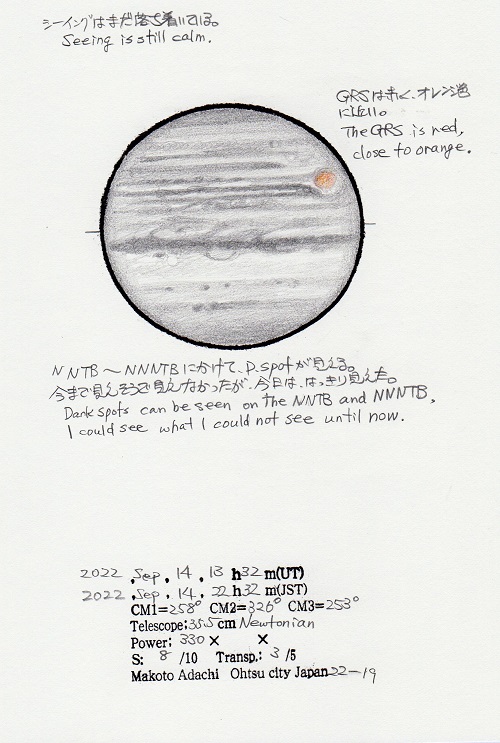 シーイングはまだ落ち着いている。
Seeing is still calm.
GRSは赤く、オレンジ色
に近い。
The GRS is red,
close to orange.
NNTB～NNNTBにかけて、D.spotが見える。
今まで見えそうで見えなかったが、今日は、はっきり見えた。
Dark spots can be seen on the NNTB and NNNTB,
I could see what I could not see until now.
2022 ,Sep , 14 , 13 h32 m(UT)
2022 ,Sep , 14 , 22 h32 m(JST)
CM1=258° CM2=326° CM3=253°
Telescope;35.5cm Newtonian
Power; 330 × ×
S: 8 /10 Transp.: 3 /5
Makoto Adachi Ohtsu city Japan 22-19